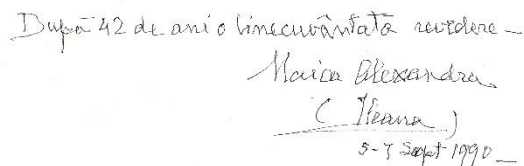 După 42 de ani o binecuvântată revedere –
Maica Alexandra
(Ileana)
5-7 Sept 1990